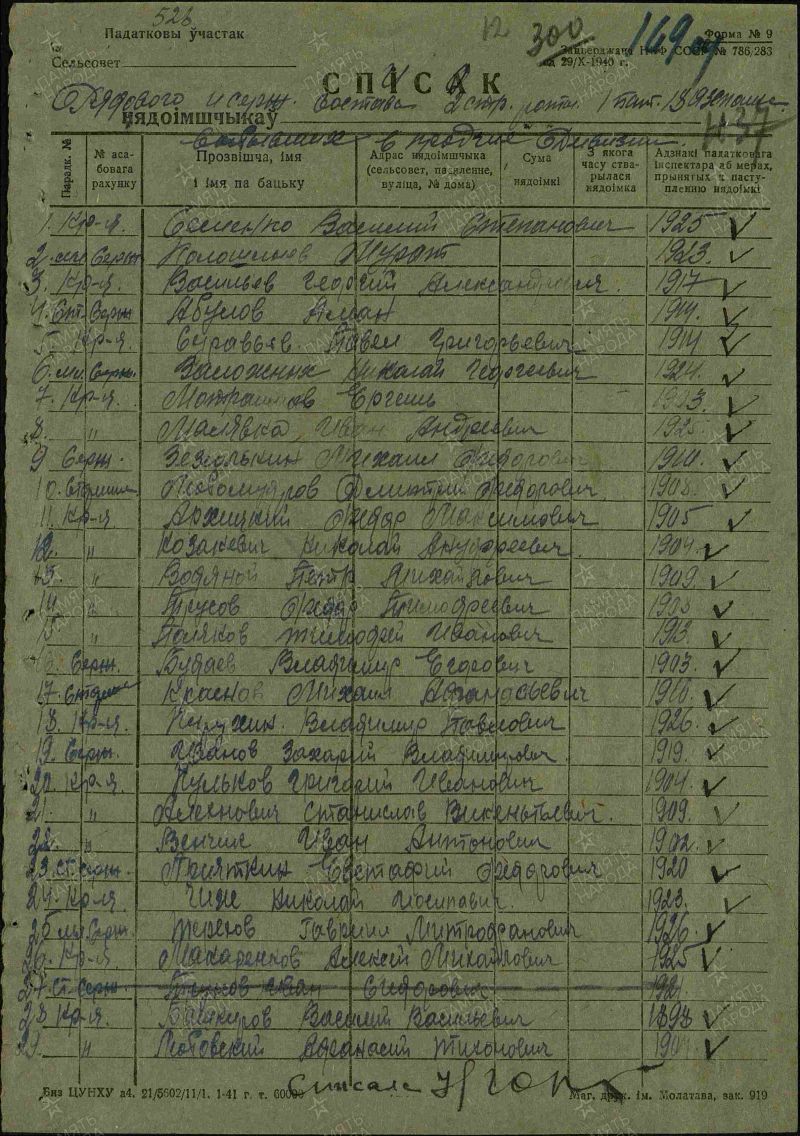 526
12 300 169
Падатковы ўчастак
Форма № 9
Сельсовет
Зацверджана НКФ СССР № 786/283
ад 29/X-1940 г.
СПІСАК
Рядового и серж. состава 2 стр. роты 1 бат.
нядоімшчыкаў
в продчие Дивизии.
Парадк. №
№ асабовага рахунку
Прозвішча, імя і імя па бацьку
Адрас нядоімшчыка (сельсовет, паселение, вуліца, № дома)
Сума нядоімкі
З якога часу стварылася нядоімка
Адзнакі падатковага інспектара аб мерах, прынятых к паступленню нядоімкі
1. Кр-я. Семенько Василий Степанович 1925 ✓
2. мл Серж Мурат 1923. ✓
3. Кр-я. Васильев Георгий Александрович. 1917 ✓
4. Ст. Серж Абулов Аман 1914. ✓
5. Кр-я. Суравьев Павел Григорьевич 1914 ✓
6. мл. Серж. Заложных Николай Георгиевич 1924. ✓
7. Кр-я. Ергешь 1903. ✓
8. " Малявка Иван Андреевич 1925 ✓
9 Серж. Михаил Федорович 1910. ✓
10. Старшина Любомудров Дмитрий Федорович. 1908. ✓
11. Кр-я. Федор Максимович 1905 ✓
12. " Козакевич Николай Ануфреевич. 1904. ✓
13. " Водяной Петр Михайлович 1909. ✓
14. " Трусов Федор Тимофеевич 1903 ✓
15 " Поляков Тимофей Иванович 1913. ✓
16. Серж. Будаев Владимир Егорович 1903. ✓
17. Краснов Михаил Афанасьевич 1918. ✓
18. Кр-я. Владимир Павлович 1926. ✓
19. Серж. Иванов Захарий Владимирович. 1919. ✓
20. Кр-я. Пульков Григорий Иванович 1904. ✓
21. " Алехнович Станислав Викентьевич. 1909. ✓
22. " Венчик Иван Антонович 1902. ✓
23. ст. серж. Пляткин Евстафий Федорович 1920 ✓
24. Кр-я. Чиж Николай Иосипавич. 1923. ✓
25 мл. Серж. Терехов Гаврил Митрофанович 1926. ✓
26. Кр-я. Макаренков Алексей Михайлович 1925 ✓
27. ст. Серж. Иван Сидорович 1921
28 Кр-я. Башкуров Василий Васильевич 1898 ✓
29. " Лотовский Афанасий Тихонович 1901 ✓
Биз ЦУНХУ а4. 21/5602/11/1. 1-41 г. т. 60000
Маг. друк. ім. Молатава, зак. 919